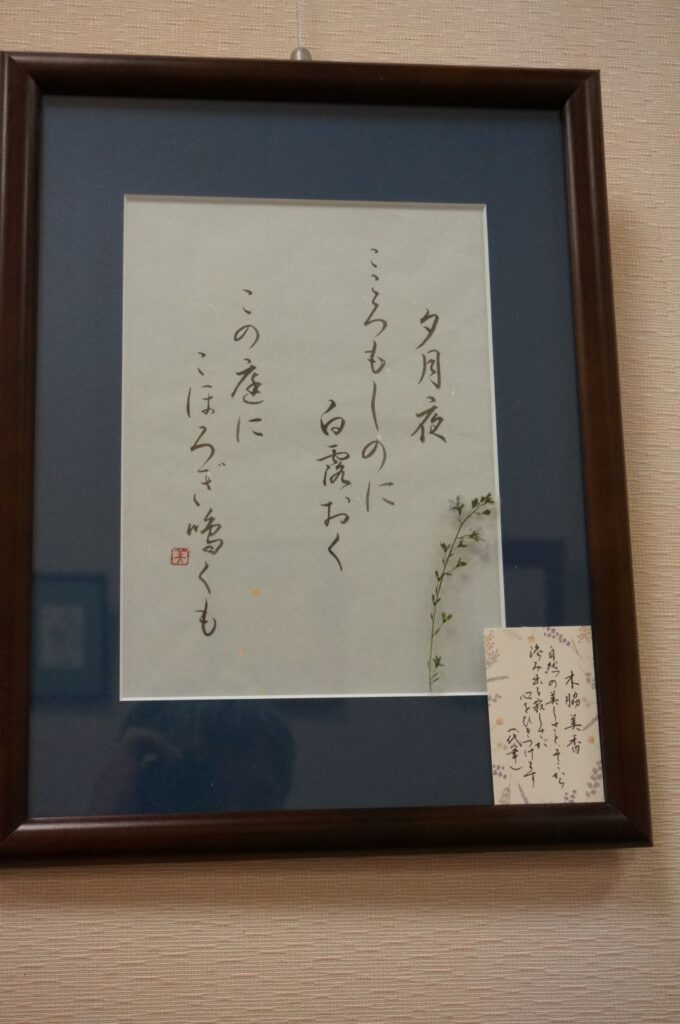 夕月夜
こころもしのに
白露おく
この庭に
こほろぎ鳴くも
美
木脇美香
自然の美しさとそこから
滲み出る寂しさが
心をひきつけます
(代筆)